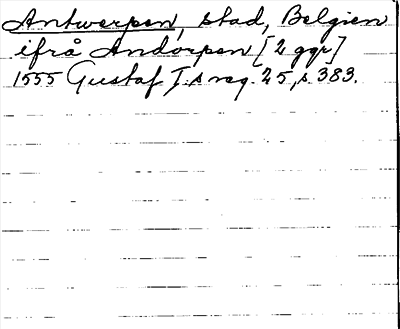 Antwerpen, stad, Belgien
ifrå Andorpen [2 ggr]
1555 Gustaf I.s reg. 25, s. 383.